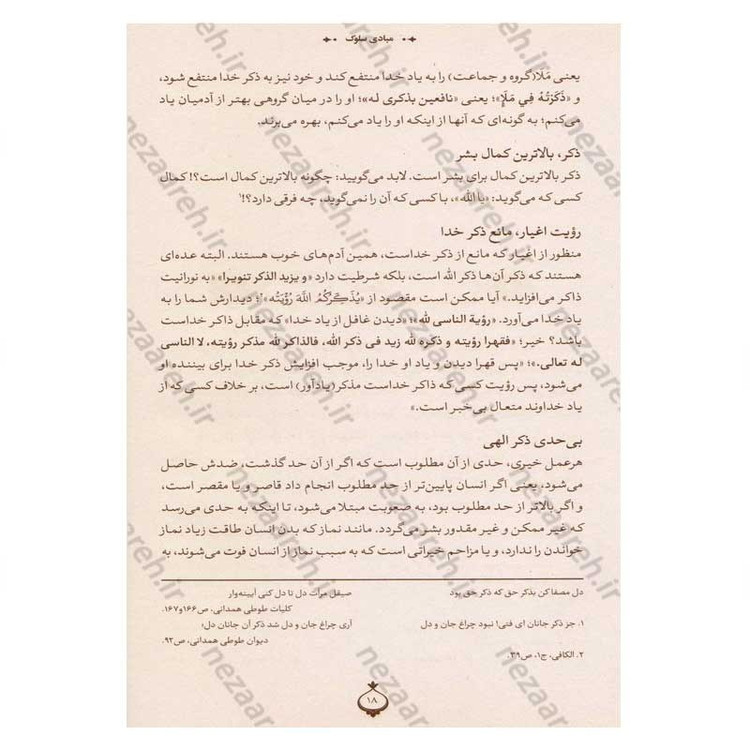 مبادی سلوک
یعنی مَلَأ (گروه و جماعت) را به یاد خدا منتفع کند و خود نیز به ذکر خدا منتفع شود،
و «ذَکَرْتُهُ فِي مَلَإٍ»؛ یعنی «نافعین بذکری له»؛ او را در میان گروهی بهتر از آدمیان یاد
می‌کنم؛ به گونه‌ای که آنها از اینکه او را یاد می‌کنم، بهره می‌برند.
ذکر، بالاترین کمال بشر
ذکر بالاترین کمال برای بشر است. لابد می‌گویید: چگونه بالاترین کمال است؟! کمال
کسی که می‌گوید: «یا الله»، با کسی که آن را نمی‌گوید، چه فرقی دارد؟!۱
رؤیت اغیار، مانع ذکر خدا
منظور از اغیار که مانع از ذکر خداست، همین آدم‌های خوب هستند. البته عده‌ای
هستند که ذکر آن‌ها ذکر الله است، بلکه شرطیت دارد «و یزید الذکر تنویرا» «به نورانیت
ذاکر می‌افزاید.» آیا ممکن است مقصود از «یُذَکِّرُکُمُ اللهَ رُؤْیَتُه»۲؛ دیدارش شما را به
یاد خدا می‌آورد. «رؤیة الناسی لله»؛ «دیدن غافل از یاد خدا» که مقابل ذاکر خداست
باشد؟ خیر؛ «فقهرا رؤیته و ذکره لله زید فی ذکر الله، فالذاکر لله مذکر رؤیته، لا الناسی
له تعالی.»؛ «پس قهرا دیدن و یاد او خدا را، موجب افزایش ذکر خدا برای بیننده او
می‌شود، پس رؤیت کسی که ذاکر خداست مذکر (یادآور) است، بر خلاف کسی که از
یاد خداوند متعال بی‌خبر است.»
بی‌حدی ذکر الهی
هر عمل خیری، حدی از آن مطلوب است که اگر از آن حد گذشت، ضدش حاصل
می‌شود، یعنی اگر انسان پایین‌تر از حد مطلوب انجام داد قاصر و یا مقصر است،
و اگر بالاتر از حد مطلوب بود، به صعوبت مبتلا می‌شود، تا اینکه به حدی می‌رسد
که غیر ممکن و غیر مقدور بشر می‌گردد. مانند نماز که بدن انسان طاقت زیاد نماز
خواندن را ندارد، و یا مزاحم خیراتی است که به سبب نماز از انسان فوت می‌شوند، به
دل مصفا کن بذکر حق که ذکر حق بود صیقل مرآت دل تا دل کنی آیینه‌وار
کلیات طوطی همدانی، ص۱۶۶و۱۶۷.
۱. جز ذکر جانان ای فنی! نبود چراغ جان و دل آری چراغ جان و دل شد ذکر آن جانان دل؛
دیوان طوطی همدانی، ص۹۲.
۲. الکافی، ج۱، ص۳۹.
۱۸
nezaareh.ir